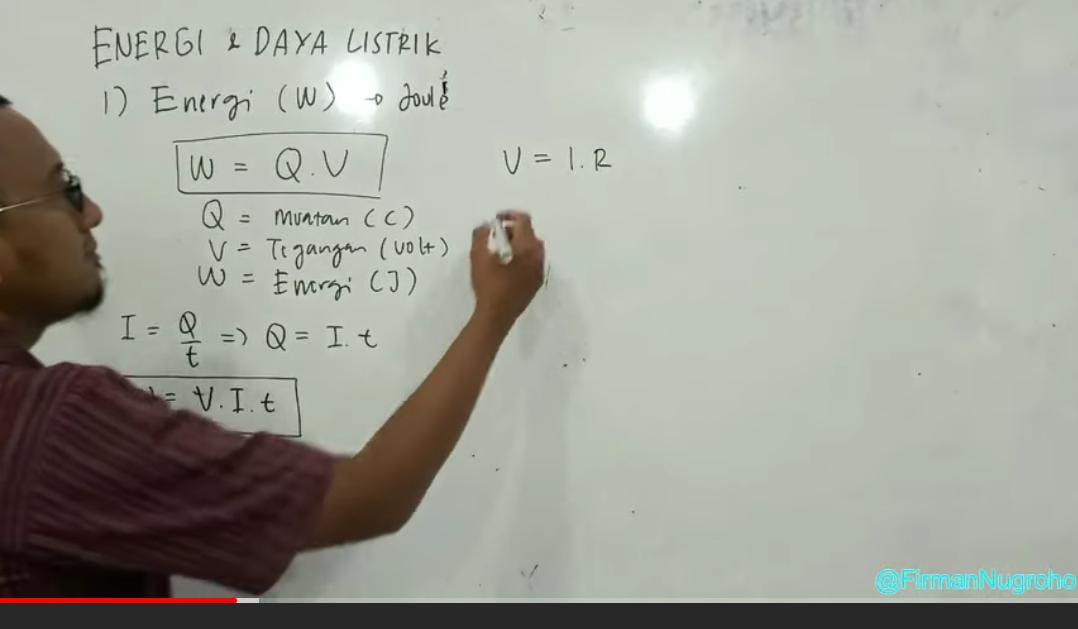 ENERGI & DAYA LISTRIK
1) Energi (W) → Joule
W = Q.V
Q = Muatan (C)
V = Tegangan (volt)
W = Energi (J)
I = Q/t => Q = I.t
= V.I.t
V = I.R
@FirmanNugroho